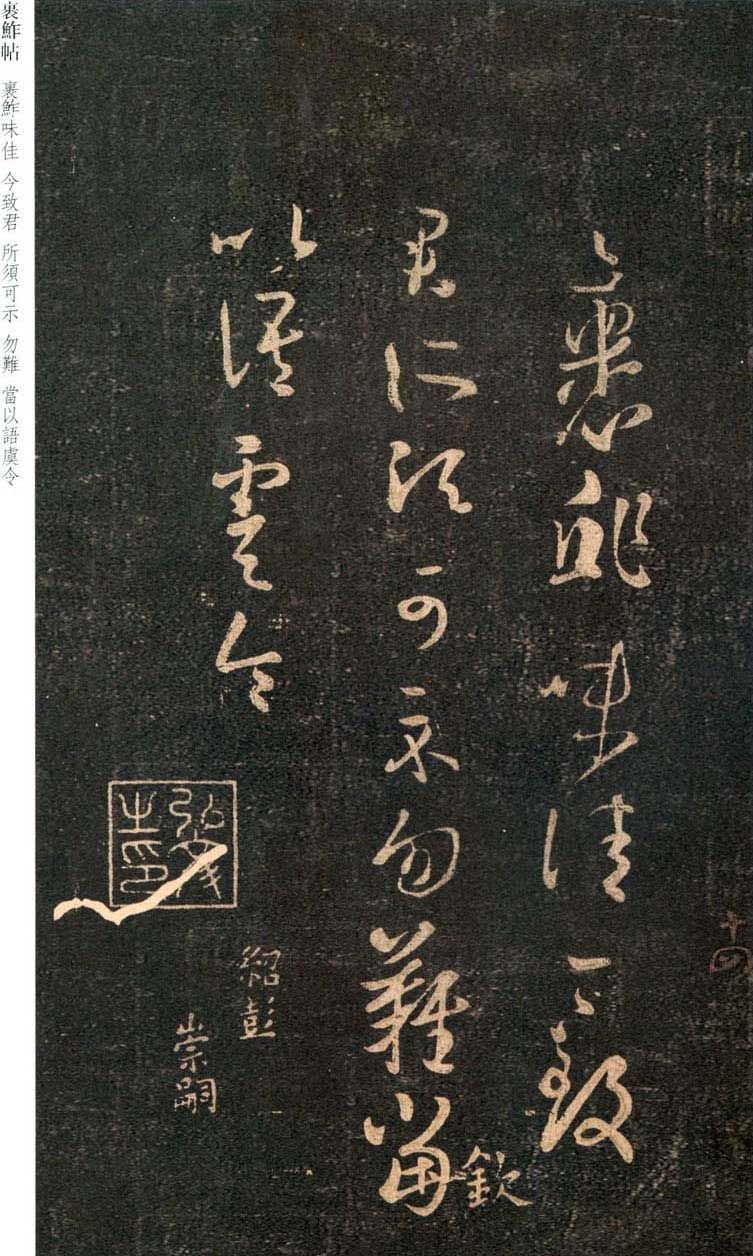 裹鮓帖 裹鮓味佳 今致君 所須可示 勿難 當以語虞令
裹鮓味佳今致
君所須可示勿難當
以語虞令
欽
紹彭
崇嗣
弘文之印
十四